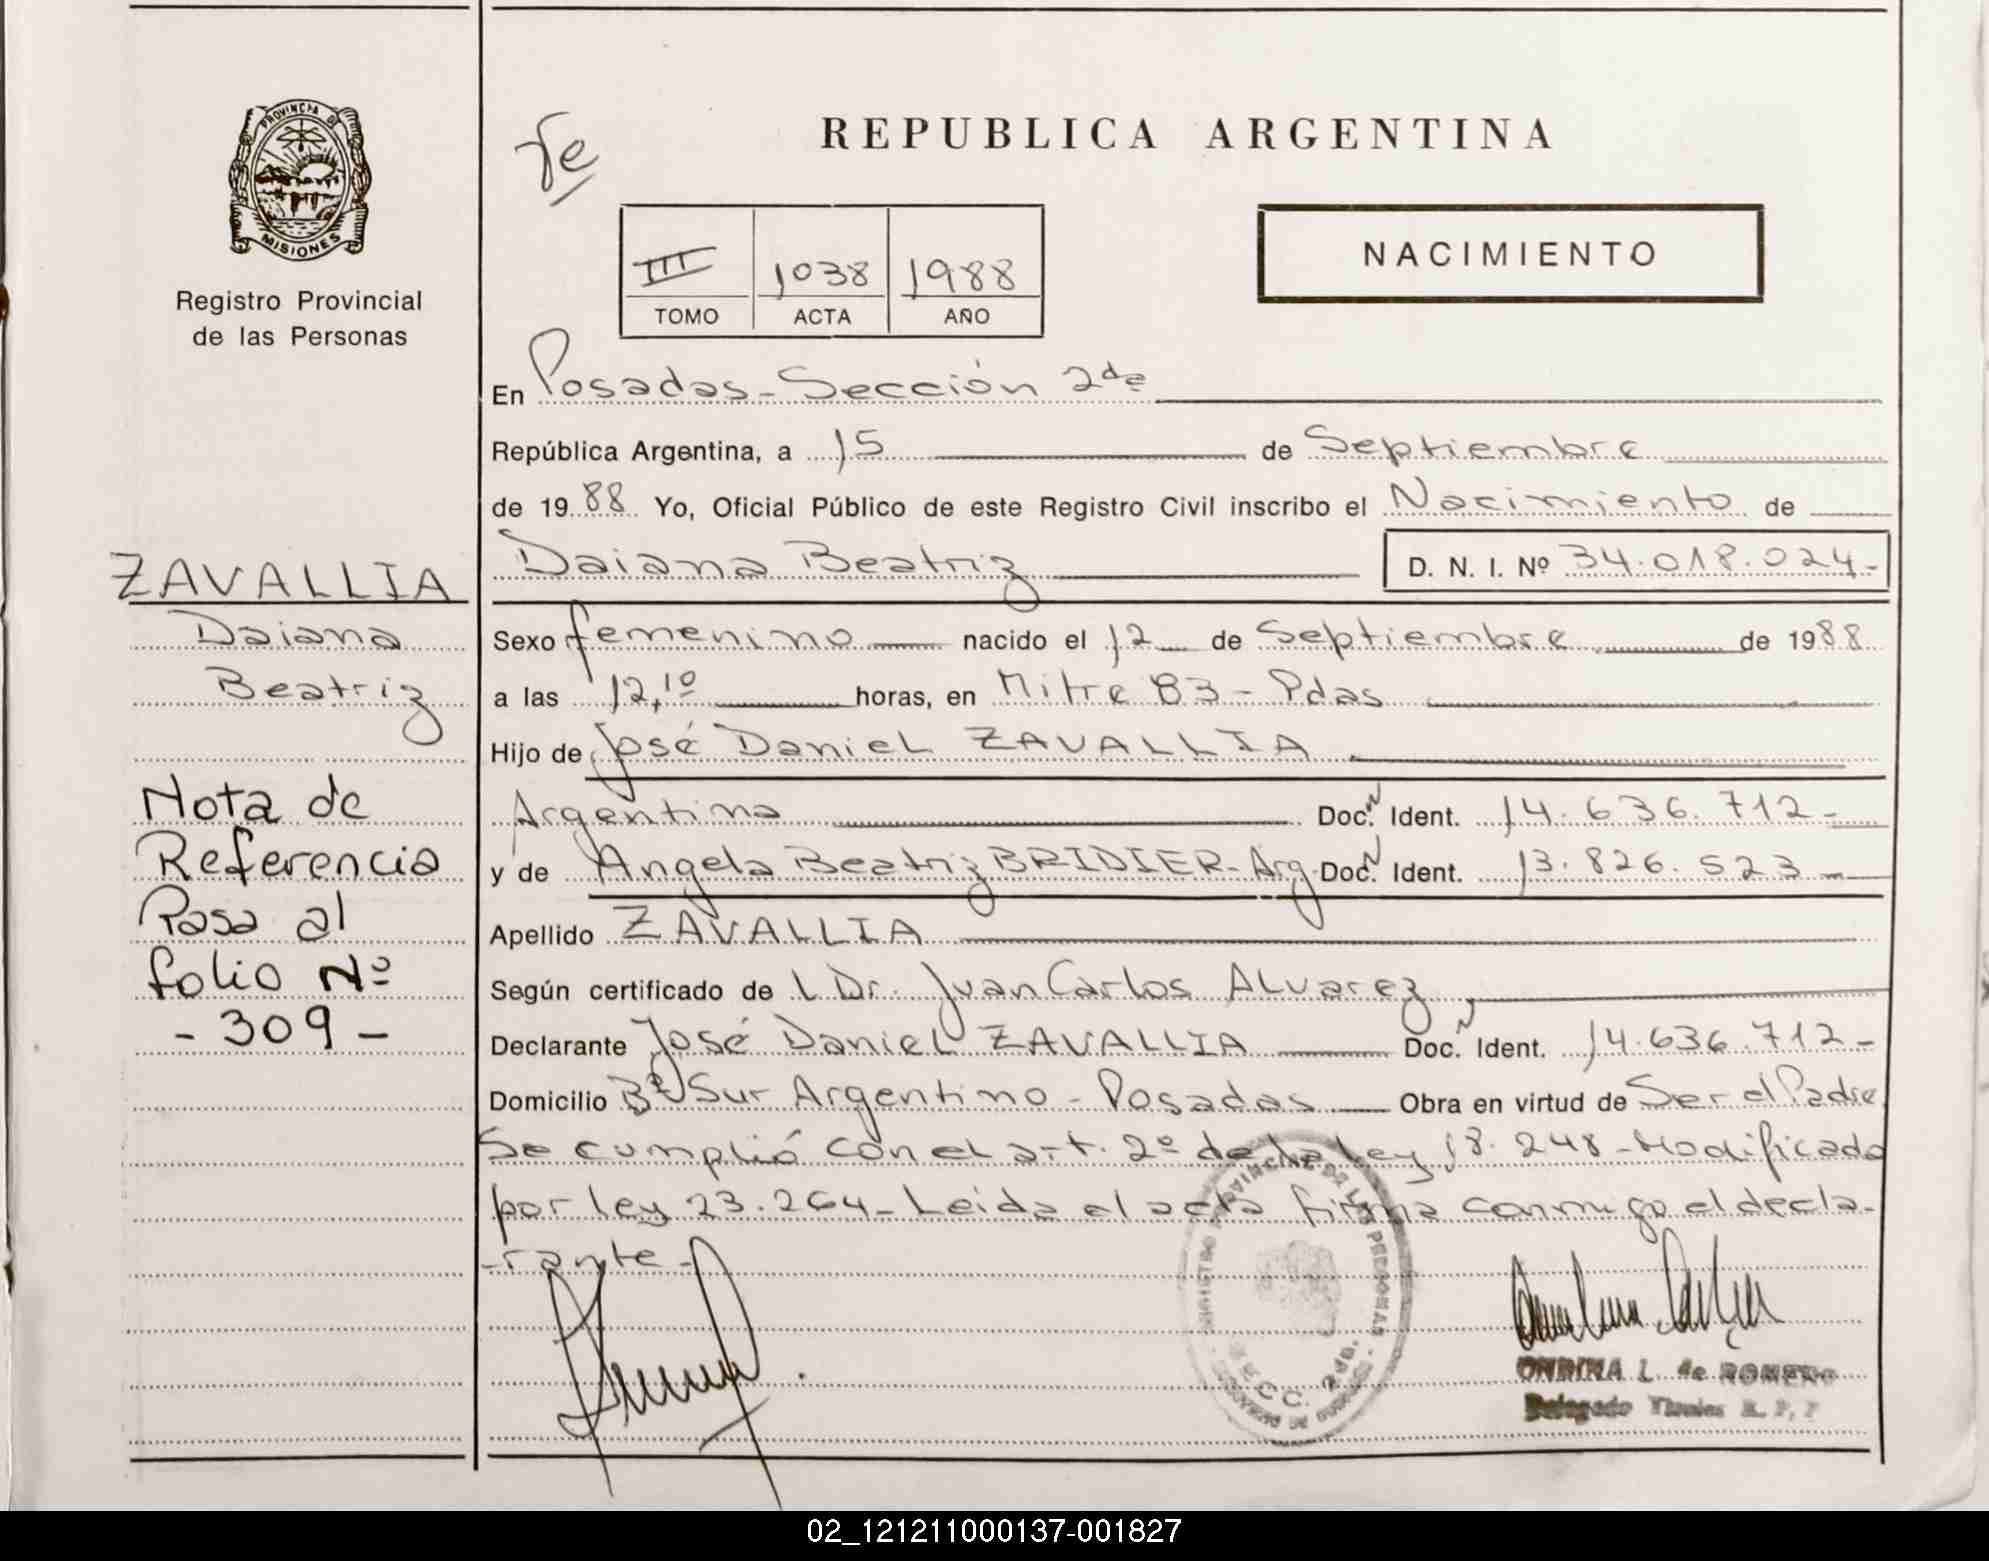 PROVINCIA D
MISIONES
Registro Provincial
de las Personas
REPUBLICA ARGENTINA
NACIMIENTO
III 1038 1988
TOMO ACTA AÑO
En Posadas - Sección 2da
República Argentina, a 15 de Septiembre
de 19 88 Yo, Oficial Público de este Registro Civil inscribo el Nacimiento de
Daiana Beatriz D. N. I. Nº 34.018.024-
Sexo femenino nacido el 12 de Septiembre de 19 88
a las 12,10 horas, en Mitre 83 - Pdas
Hijo de José Daniel ZAVALLIA
Argentina Doc. Ident. 14.636.712-
y de Angela Beatriz BRIDIER - Arg. Doc. Ident. 13.826.523-
Apellido ZAVALLIA
Según certificado de l Dr. Juan Carlos Alvarez
Declarante José Daniel ZAVALLIA Doc. Ident. 14.636.712-
Domicilio Bº Sur Argentino - Posadas Obra en virtud de Ser el Padre
Se cumplió con el art. 2º de la ley 18.248 - Modificada
por ley 23.264 - Leida el acta firma conmigo el decla-
-rante -
ZAVALLIA
Daiana
Beatriz
Nota de
Referencia
Pasa al
folio Nº
- 309 -
ONDINA L. de ROMERO
Delegado
02_121211000137-001827